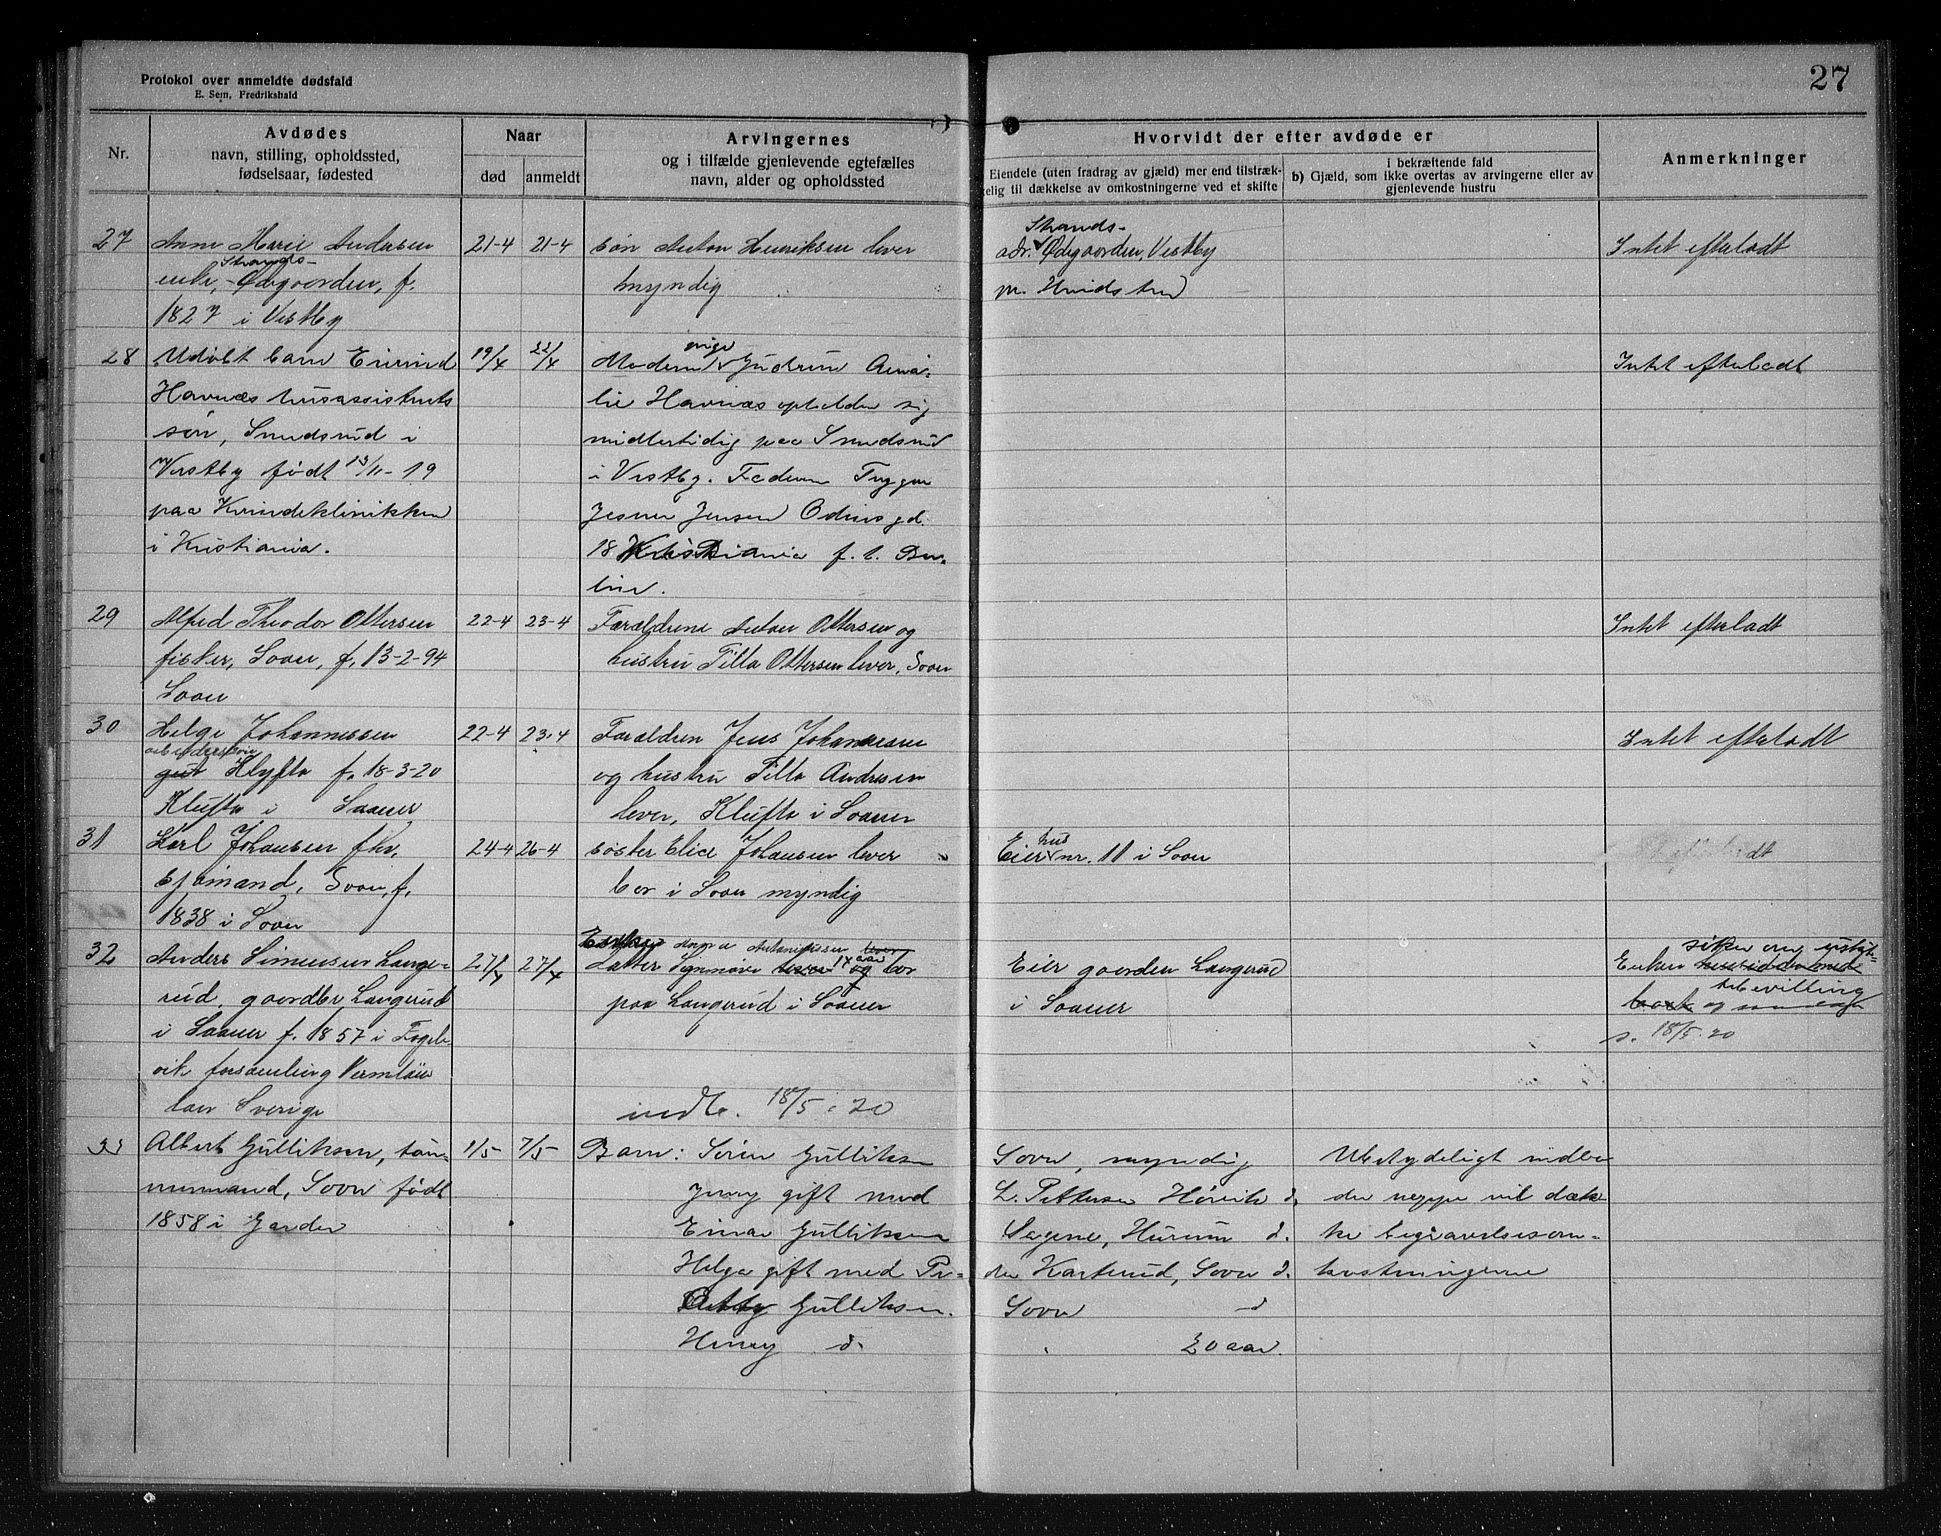 Protokol over anmeldte dødsfald
E. Sem, Fredrikshald
27
Nr.
Avdødes
navn, stilling, opholdssted,
fødselsaar, fødested
Naar
død
anmeldt
Arvingernes
og i tilfælde gjenlevende egtefælles
navn, alder og opholdssted
Hvorvidt der efter avdøde er
Eiendele (uten fradrag av gjæld) mer end tilstræk-
kelig til dækkelse av omkostningerne ved et skifte
i bekræftende fald
b) Gjæld, som ikke overtas av arvingerne eller av
gjenlevende hustru
Anmerkninger
27
Anne Marie Andersen
Strands-
enke, Ødegaarden, f.
1827 i Vestby
21-4
21-4
Søn Anton Henriksen lever
myndig
Strands-
adr. Ødegaarden, Vestby
pr. Hvidsten
Intet efterladt
28
Udøbt barn Eivind
Havnæs husassistents
søn, Smedsrud i
Vestby født 13/11-19
paa Kvindeklinikken
i Kristiania.
19/4
22/4
Moderen ugift Gudrun Ama-
lie Havnæs opholder sig
midlertidig paa Smedsrud
i Vestby. Faderen Trygve
Jensen Odinsgd.
18 Kristiania f. t. Ber-
lin.
Intet efterladt
29
Alfred Theodor Ottersen
fisker, Soon, f. 13-2-94
Soon
22-4
23-4
Forældrene Anton Ottersen og
hustru Tilla Ottersen lever, Soon
Intet efterladt
30
Helge Johannessen
arbeiderssøn
Klufta f. 18-3-20
Klufta i Saaner
22-4
23-4
Forældren Jens Johannessen
og hustru Tilla Andresen
lever, Klufta i Saaner
Intet efterladt
31
Karl Johansen fhv.
sjømand, Soon, f.
1838 i Soon
24-4
26-4
Søster Elise Johansen lever
bor i Soon myndig
Eier hus nr. 11 i Soon
32
Anders Simensen Lange-
rud, gaardbr Langerud
i Saaner f. 1857 i Fogel-
vik forsamling Vermlan
laen Sverige
27/4
27/4
Enke Antonisen lever
Datter Synnøve lever 14 aar og bor
paa Langerud i Saaner
indk. 18/5-20
Eier gaarden Langerud
i Saaner
Enken sitter
bevilling
s. 18/5-20
33
Albert Gulliksen, tøm-
mermand, Soon født
1858 i Garder
1/5
7/5
Barn: Søren Gulliksen
Jenny gift med
Einar Gulliksen
Helga gift med Pe-
Gulliksen.
Henry d.
Soon, myndig
L. Pettersen Hørvik d.
Sagene, Hurum d.
der Karterud, Soon d.
Soon d
20 aar.
Ubetydeligt indbo
der neppe vil dæk-
ke begravelsesom-
kostningerne